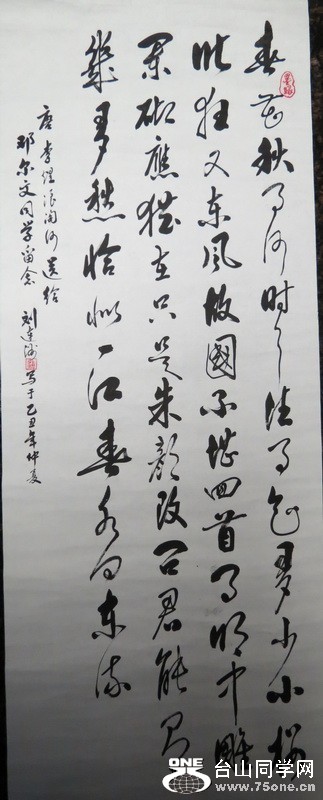 春花秋月何时了往事知多少小楼
昨夜又东風故國不堪回首月明中雕
闌砌應猶在只是朱颜改问君能有
幾多愁恰似一江春水向东流
唐李煜浪淘沙選给
邓尔文同学留念
刘 写于乙丑年仲夏
ONE
台山同学网
www.75one.cn